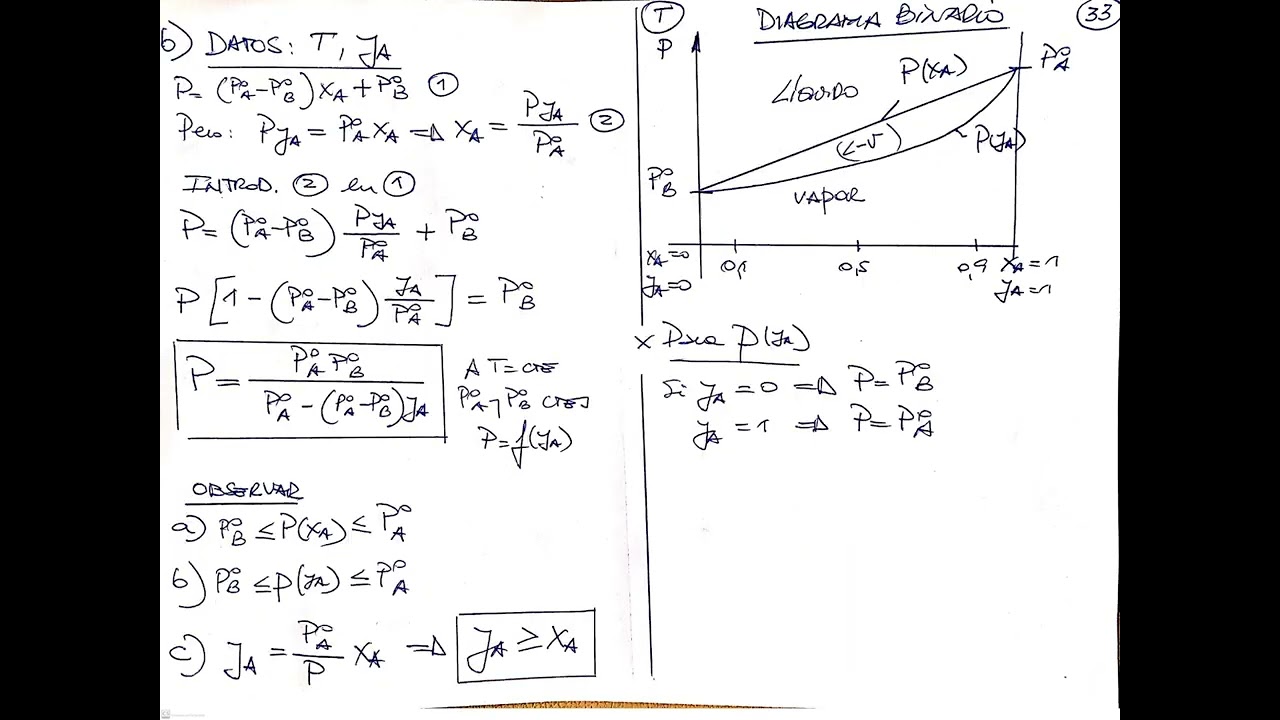 b) DATOS: T, yA
P = (P°A - P°B) xA + P°B ①
Pero: P yA = P°A xA ⇒ xA = P yA / P°A ②
INTROD. ② en ①
P = (P°A - P°B) P yA / P°A + P°B
P [1 - (P°A - P°B) yA / P°A] = P°B
P = P°A P°B / (P°A - (P°A - P°B) yA)
A T = CTE
P°A y P°B CTES
P = f(yA)
OBSERVAR
a) P°B ≤ P(xA) ≤ P°A
b) P°B ≤ P(yA) ≤ P°A
c) yA = P°A / P xA ⇒ yA ≥ xA
T DIAGRAMA BINARIO 33
P
P°A
LÍQUIDO
P(xA)
L-V
P(yA)
P°B
VAPOR
xA = 0 0,1 0,5 0,9 xA = 1
yA = 0 yA = 1
x Para P(yA)
Si yA = 0 ⇒ P = P°B
yA = 1 ⇒ P = P°A